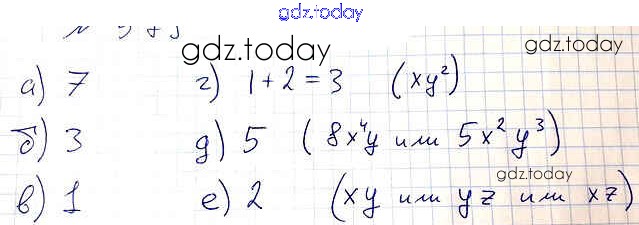 gdz.today
gdz.today gdz.today
а) 7 г) 1+2=3 (xy²)
б) 3 д) 5 (8x⁴y или 5x²y³)
gdz.today
в) 1 е) 2 (xy или yz или xz)